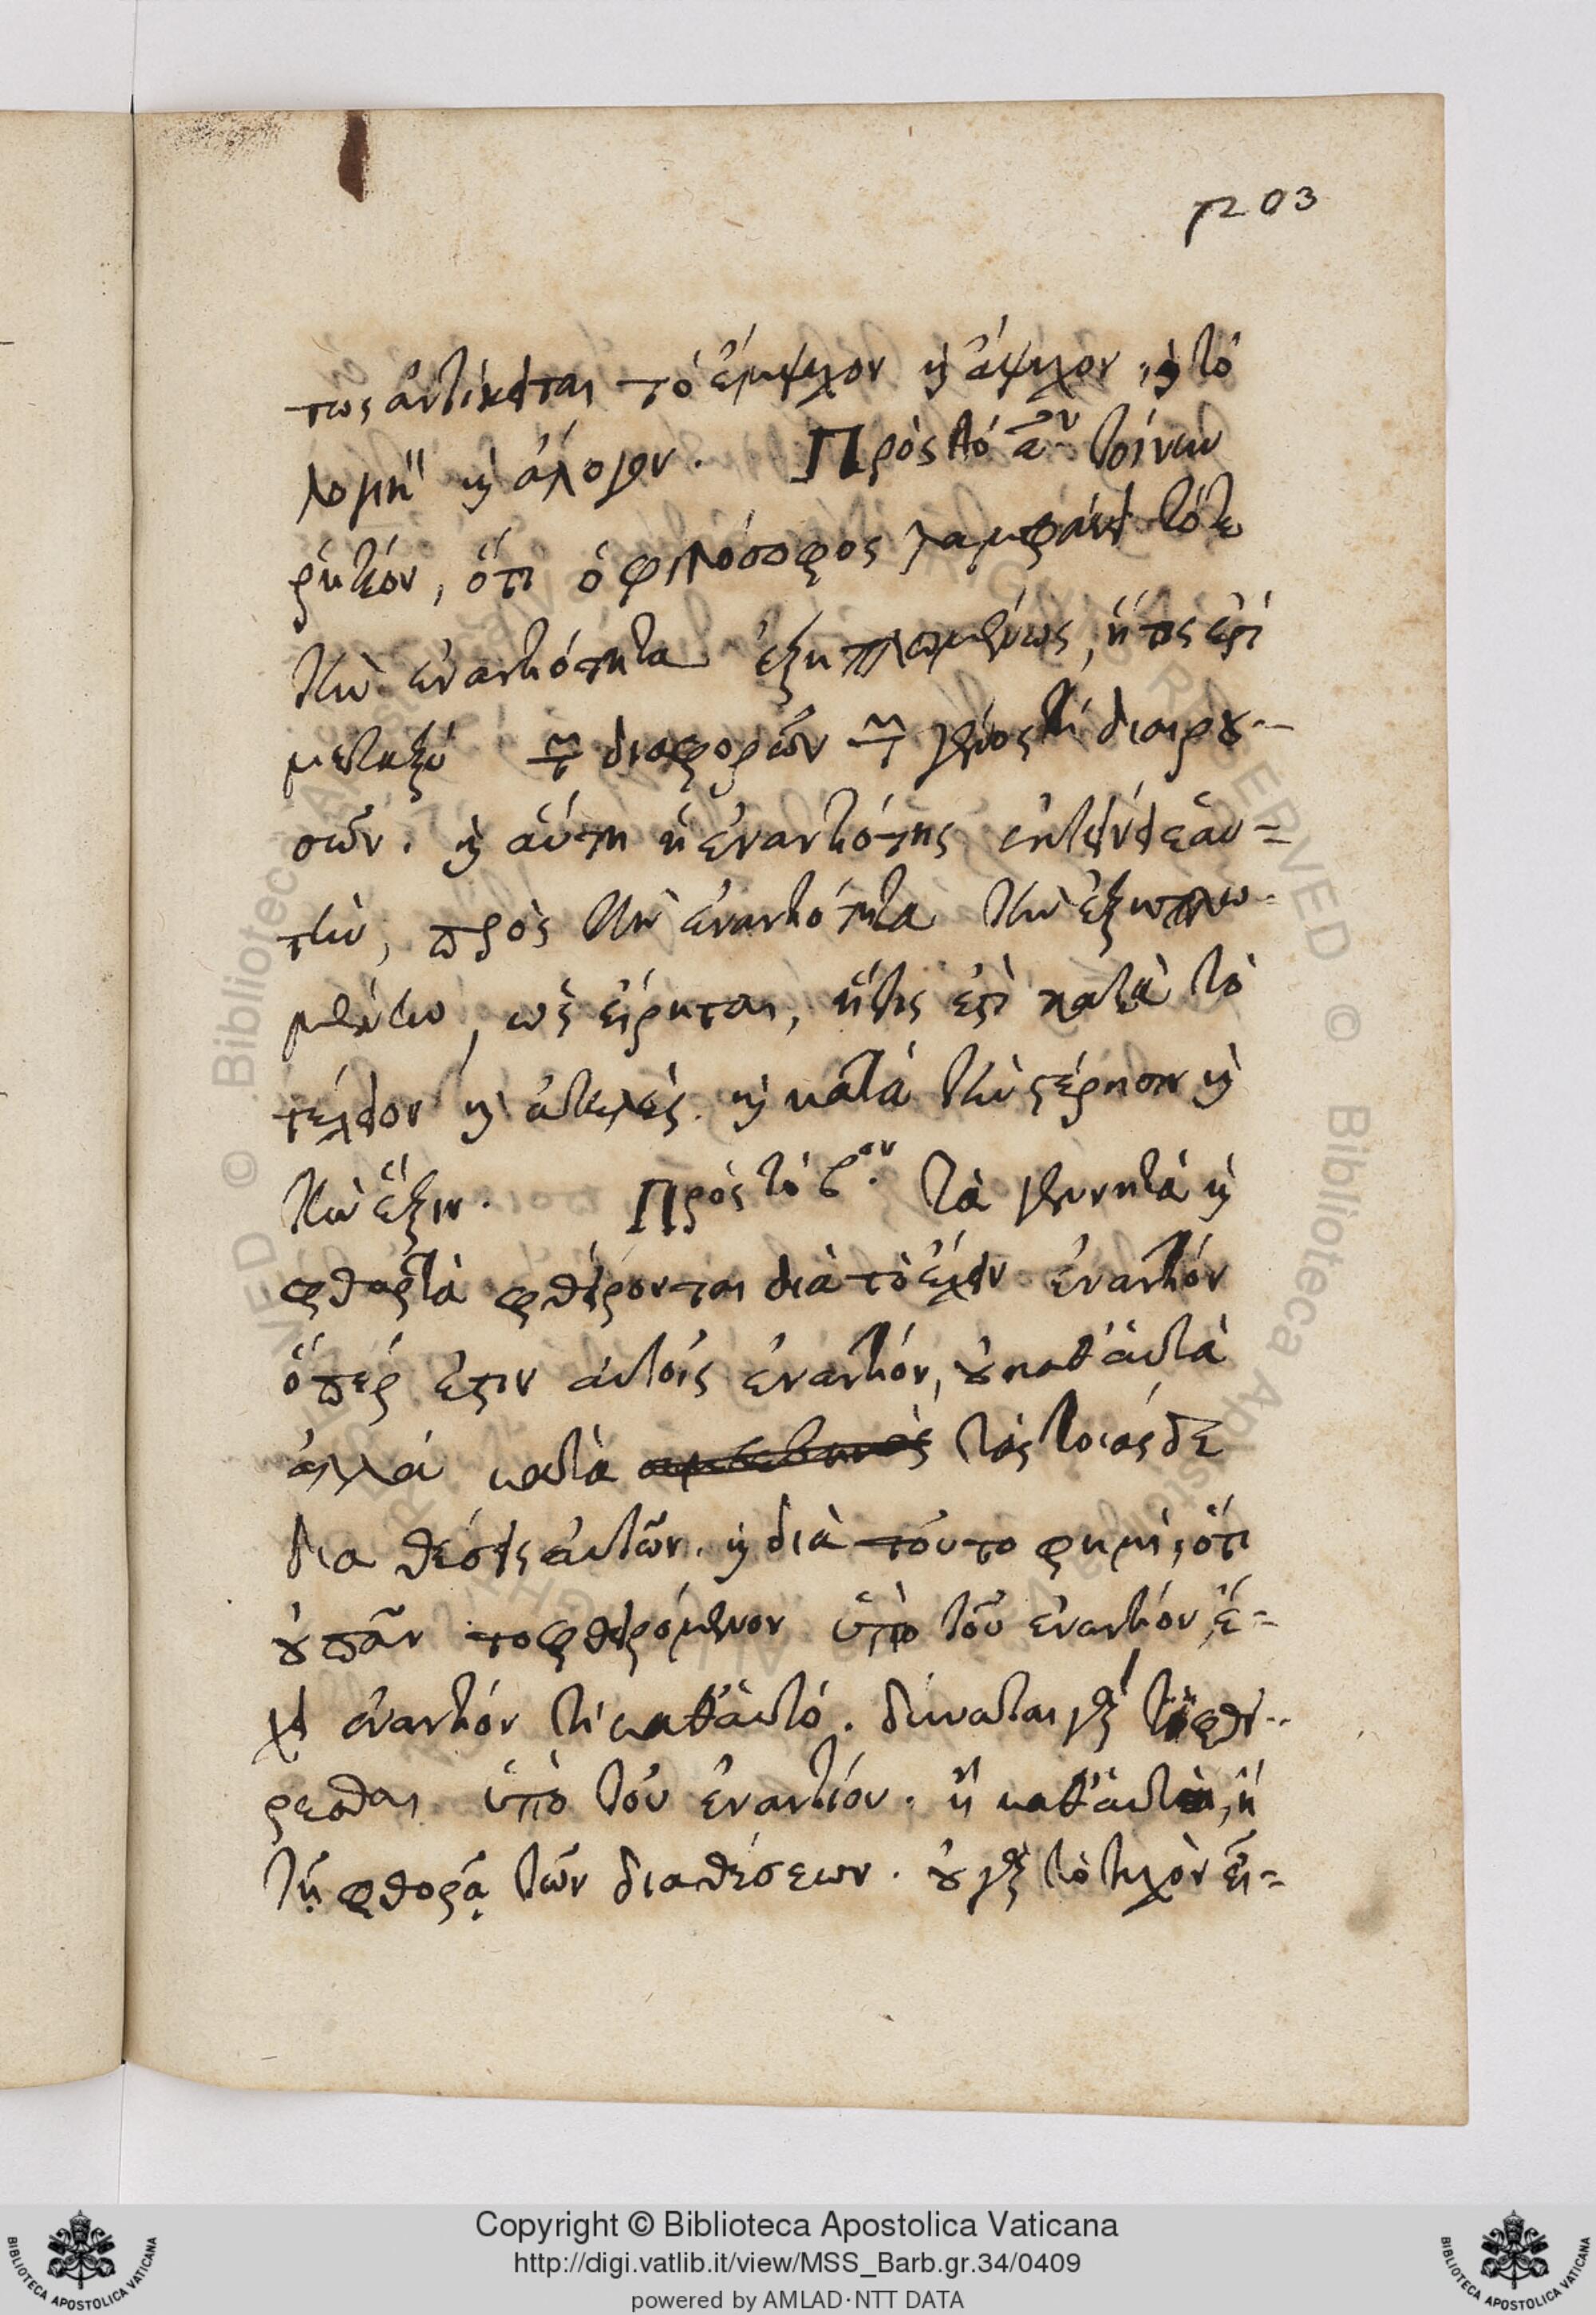 203
τως ἀντίκειται τὸ ἔμψυχον καὶ ἄψυχον, καὶ τὸ
λογικὸν καὶ ἄλογον. Πρὸς τὸ αον τοίνυν
ῥητέον, ὅτι ὁ φιλόσοφος λαμβάνει τότε
τὴν ἐναντιότητα ἐξηπλωμένως, ἥτις ἐστὶ
μεταξὺ τῶν διαφορῶν τῶν γένος τὶ διαιρου-
σῶν. καὶ αὕτη ἡ ἐναντιότης ἐκτείνει ἑαυ=
τὴν, πρὸς τὴν ἐναντιότητα τὴν ἐξηπλω-
μένην, ὡς εἴρηται, ἥτις ἐστὶ κατὰ τὸ
τέλειον καὶ ἀτελὲς. καὶ κατὰ τὴν στέρησιν καὶ
τὴν ἕξιν. Πρὸς τὸ βον. τὰ γεννητὰ καὶ
φθαρτὰ φθείρονται διὰ τὸ ἔχειν ἐναντίον
ὅπερ ἐστιν αὐτοῖς ἐναντίον, οὐ καθ' αὑτὰ
ἀλλὰ κατὰ τὰς τοιάσδε
διαθέσεις αὐτῶν. καὶ διὰ τοῦτο φημὶ, ὅτι
οὐ πᾶν το φθειρόμενον ὑπὸ τοῦ ἐναντίου ἔ=
χει ἐναντίον τὶ καθ' αὑτό. δύναται γὰρ τὶ φθεί-
ρεσθαι ὑπὸ τοῦ ἐναντίου. ἢ καθ' αὑτὸ, ἢ
τῇ φθορᾷ τῶν διαθέσεων. οὐ γὰρ τὸ τυχὸν εἰ=
Copyright © Biblioteca Apostolica Vaticana
http://digi.vatlib.it/view/MSS_Barb.gr.34/0409
powered by AMLAD·NTT DATA
BIBLIOTECA APOSTOLICA VATICANA
BIBLIOTECA APOSTOLICA VATICANA